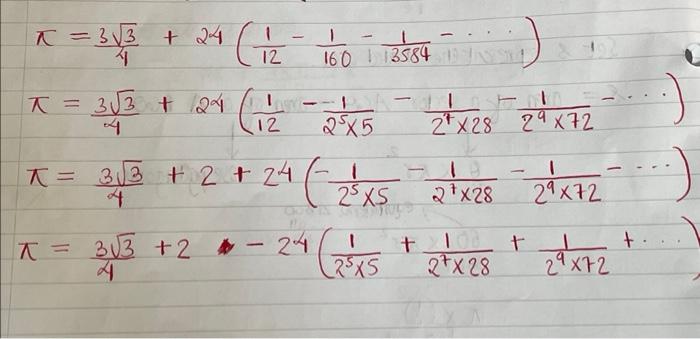 π = 3√3/4 + 24 (1/12 - 1/160 - 1/3584 - ....)
π = 3√3/4 + 24 (1/12 - 1/2⁵×5 - 1/2⁷×28 - 1/2⁹×72 - ...)
π = 3√3/4 + 2 + 24 (- 1/2⁵×5 - 1/2⁷×28 - 1/2⁹×72 - ...)
π = 3√3/4 + 2 - 24 (1/2⁵×5 + 1/2⁷×28 + 1/2⁹×72 + ...)